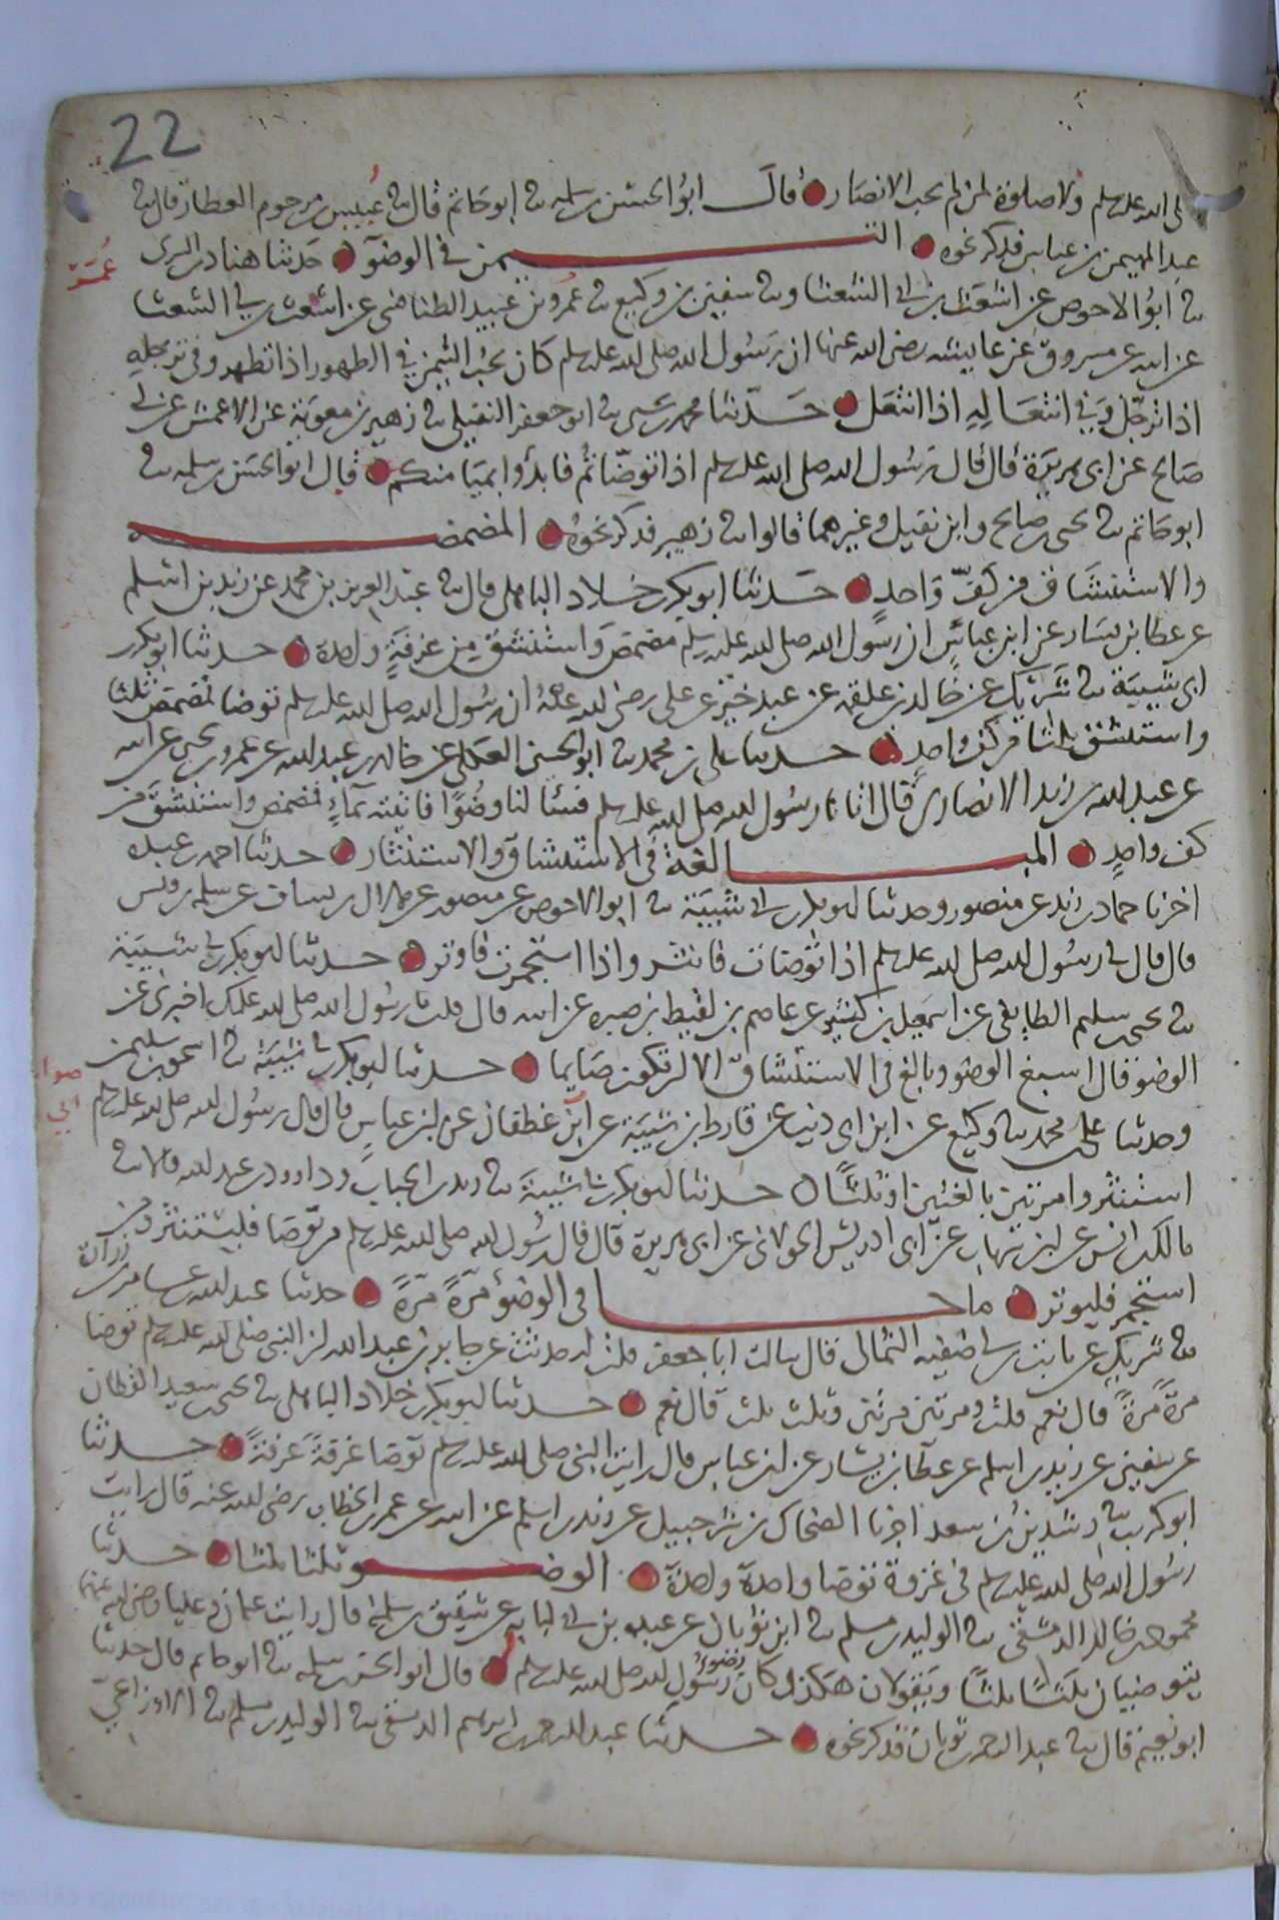 22
لى الله عليه وسلم ولا صلوة لمن لم يحب الانصار قال ابو الحسن بن سلمه نا ابو حاتم قال نا عبيس بن مرحوم العطار قال نا
عبد المهيمن بن عباس فذكر نحوه التيمن في الوضوء حدثنا هناد بن السرى
نا ابو الاحوص عن اشعث بن ابي الشعثا ونا سفين بن وكيع نا عمرو بن عبيد الطنافسى عن اشعث بن ابي الشعثا
عن ابيه عن مسروق عن عايشه رضى الله عنها ان رسول الله صلى الله عليه وسلم كان يحب التيمن في الطهور اذا تطهر وفى ترجله
اذا ترجل وفي انتعاله اذا انتعل حدثنا محمد بن يحيى نا ابو جعفر النفيلى نا زهير بن معوية عن الاعمش عن ابي
صالح عن ابى هريرة قال قال رسول الله صلى الله عليه وسلم اذا توضاتم فابدوا بميامنكم قال ابو الحسن بن سلمه نا
ابو حاتم نا يحيى بن صالح وابن نفيل وغيرهما قالوا نا زهير فذكر نحوه المضمضه
والاستنشاق من كف واحد حدثنا ابو بكر بن خلاد الباهلى قال نا عبد العزيز بن محمد عن زيد بن اسلم
عن عطا بن يسار عن ابن عباس ان رسول الله صلى الله عليه وسلم مضمض واستنشق من غرفة واحدة حدثنا ابو بكر بن
ابى شيبة نا شريك عن خالد بن علقمه عن عبد خير عن على رضى الله عنه ان رسول الله صلى الله عليه وسلم توضا فمضمض ثلثا
واستنشق ثلثا من كف واحد حدثنا على بن محمد نا ابو الحسين العكلى عن خالد بن عبد الله عن عمرو بن يحيى عن ابيه
عن عبد الله بن زيد الانصارى قال اتانا رسول الله صلى الله عليه وسلم فسئلنا وضوا فاتيته بماء فمضمض واستنشق من
كف واحد المبالغة في الاستنشاق والاستنثار حدثنا احمد بن عبده
اخبرنا حماد بن زيد عن منصور وحدثنا ابو بكر بن ابي شيبة نا ابو الاحوص عن منصور عن هلال بن يساف عن سلمه بن قيس
قال قال لي رسول الله صلى الله عليه وسلم اذا توضات فانثر واذا استجمرت فاوتر حدثنا ابو بكر بن ابي شيبة
نا يحيى بن سليم الطايفى عن اسمعيل بن كثير عن عاصم بن لقيط بن صبره عن ابيه قال قلت يا رسول الله صلى الله عليك اخبرنى عن
الوضوء قال اسبغ الوضو وبالغ في الاستنشاق الا ان تكون صايما حدثنا ابو بكر بن ابي شيبة نا اسحق بن سليمن
وحدثنا على بن محمد نا وكيع عن ابن ابى ذيب عن قارظ بن شيبة عن ابى غطفان عن ابن عباس قال قال رسول الله صلى الله عليه وسلم
استنثروا مرتين بالغتين او ثلثا حدثنا ابو بكر بن ابي شيبة نا زيد بن الحباب وداوود بن عبد الله قالا نا
مالك بن انس عن ابن شهاب عن ابى ادريس الخولانى عن ابى هريرة قال قال رسول الله صلى الله عليه وسلم من توضا فليستنثر ومن
استجمر فليوتر ما جا في الوضوء مرة مرة حدثنا عبد الله بن عامر بن زرارة
نا شريك عن ثابت بن ابي صفيه الثمالى قال سالت ابا جعفر قلت له حدثت عن جابر بن عبد الله ان النبى صلى الله عليه وسلم توضا
مرة مرة قال نعم قلت ومرتين مرتين وثلث ثلث قال نعم حدثنا ابو بكر بن خلاد الباهلى نا يحيى بن سعيد القطان
عن سفين عن زيد بن اسلم عن عطا بن يسار عن ابن عباس قال رايت النبى صلى الله عليه وسلم توضا غرفة غرفة حدثنا
ابو كريب نا رشدين بن سعد اخبرنا الضحاك بن شرحبيل عن زيد بن اسلم عن ابيه عن عمر بن الخطاب رضى الله عنه قال رايت
رسول الله صلى الله عليه وسلم في غزوة توضا واحدة واحدة الوضوء ثلثا ثلثا حدثنا
محمود بن خالد الدمشقى نا الوليد بن مسلم نا ابن ثوبان عن عبده بن ابي لبابه عن شقيق بن سلمه قال رايت عثمان وعليا رضى الله عنهما
يتوضيان ثلثا ثلثا ويقولان هكذا كان وضوء رسول الله صلى الله عليه وسلم قال ابو الحسن بن سلمه نا ابو حاتم قال حدثنا
ابو نعيم قال نا عبد الرحمن بن ثوبان فذكر نحوه حدثنا عبد الرحمن بن ابرهيم الدمشقى نا الوليد بن مسلم نا الاوزاعى
عمر
صوابه
ابي